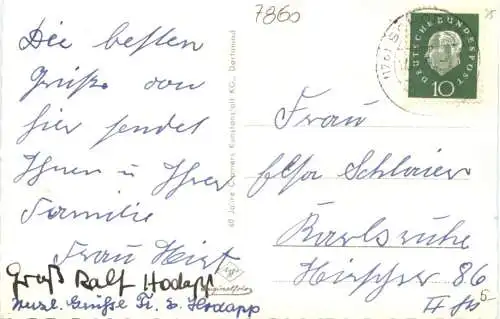 7860
Die besten
Grüße von
hier sendet
Ihnen u Ihrer
Familie
Frau Hirt
Gruß Ralf Hodapp
Herzl. Grüsse Fr. E. Hodapp
60 Jahre Cramers Kunstanstalt KG., Dortmund
DEUTSCHE BUNDESPOST
10
Frau
Elsa Schlaier
Karlsruhe
Hirschstr 86